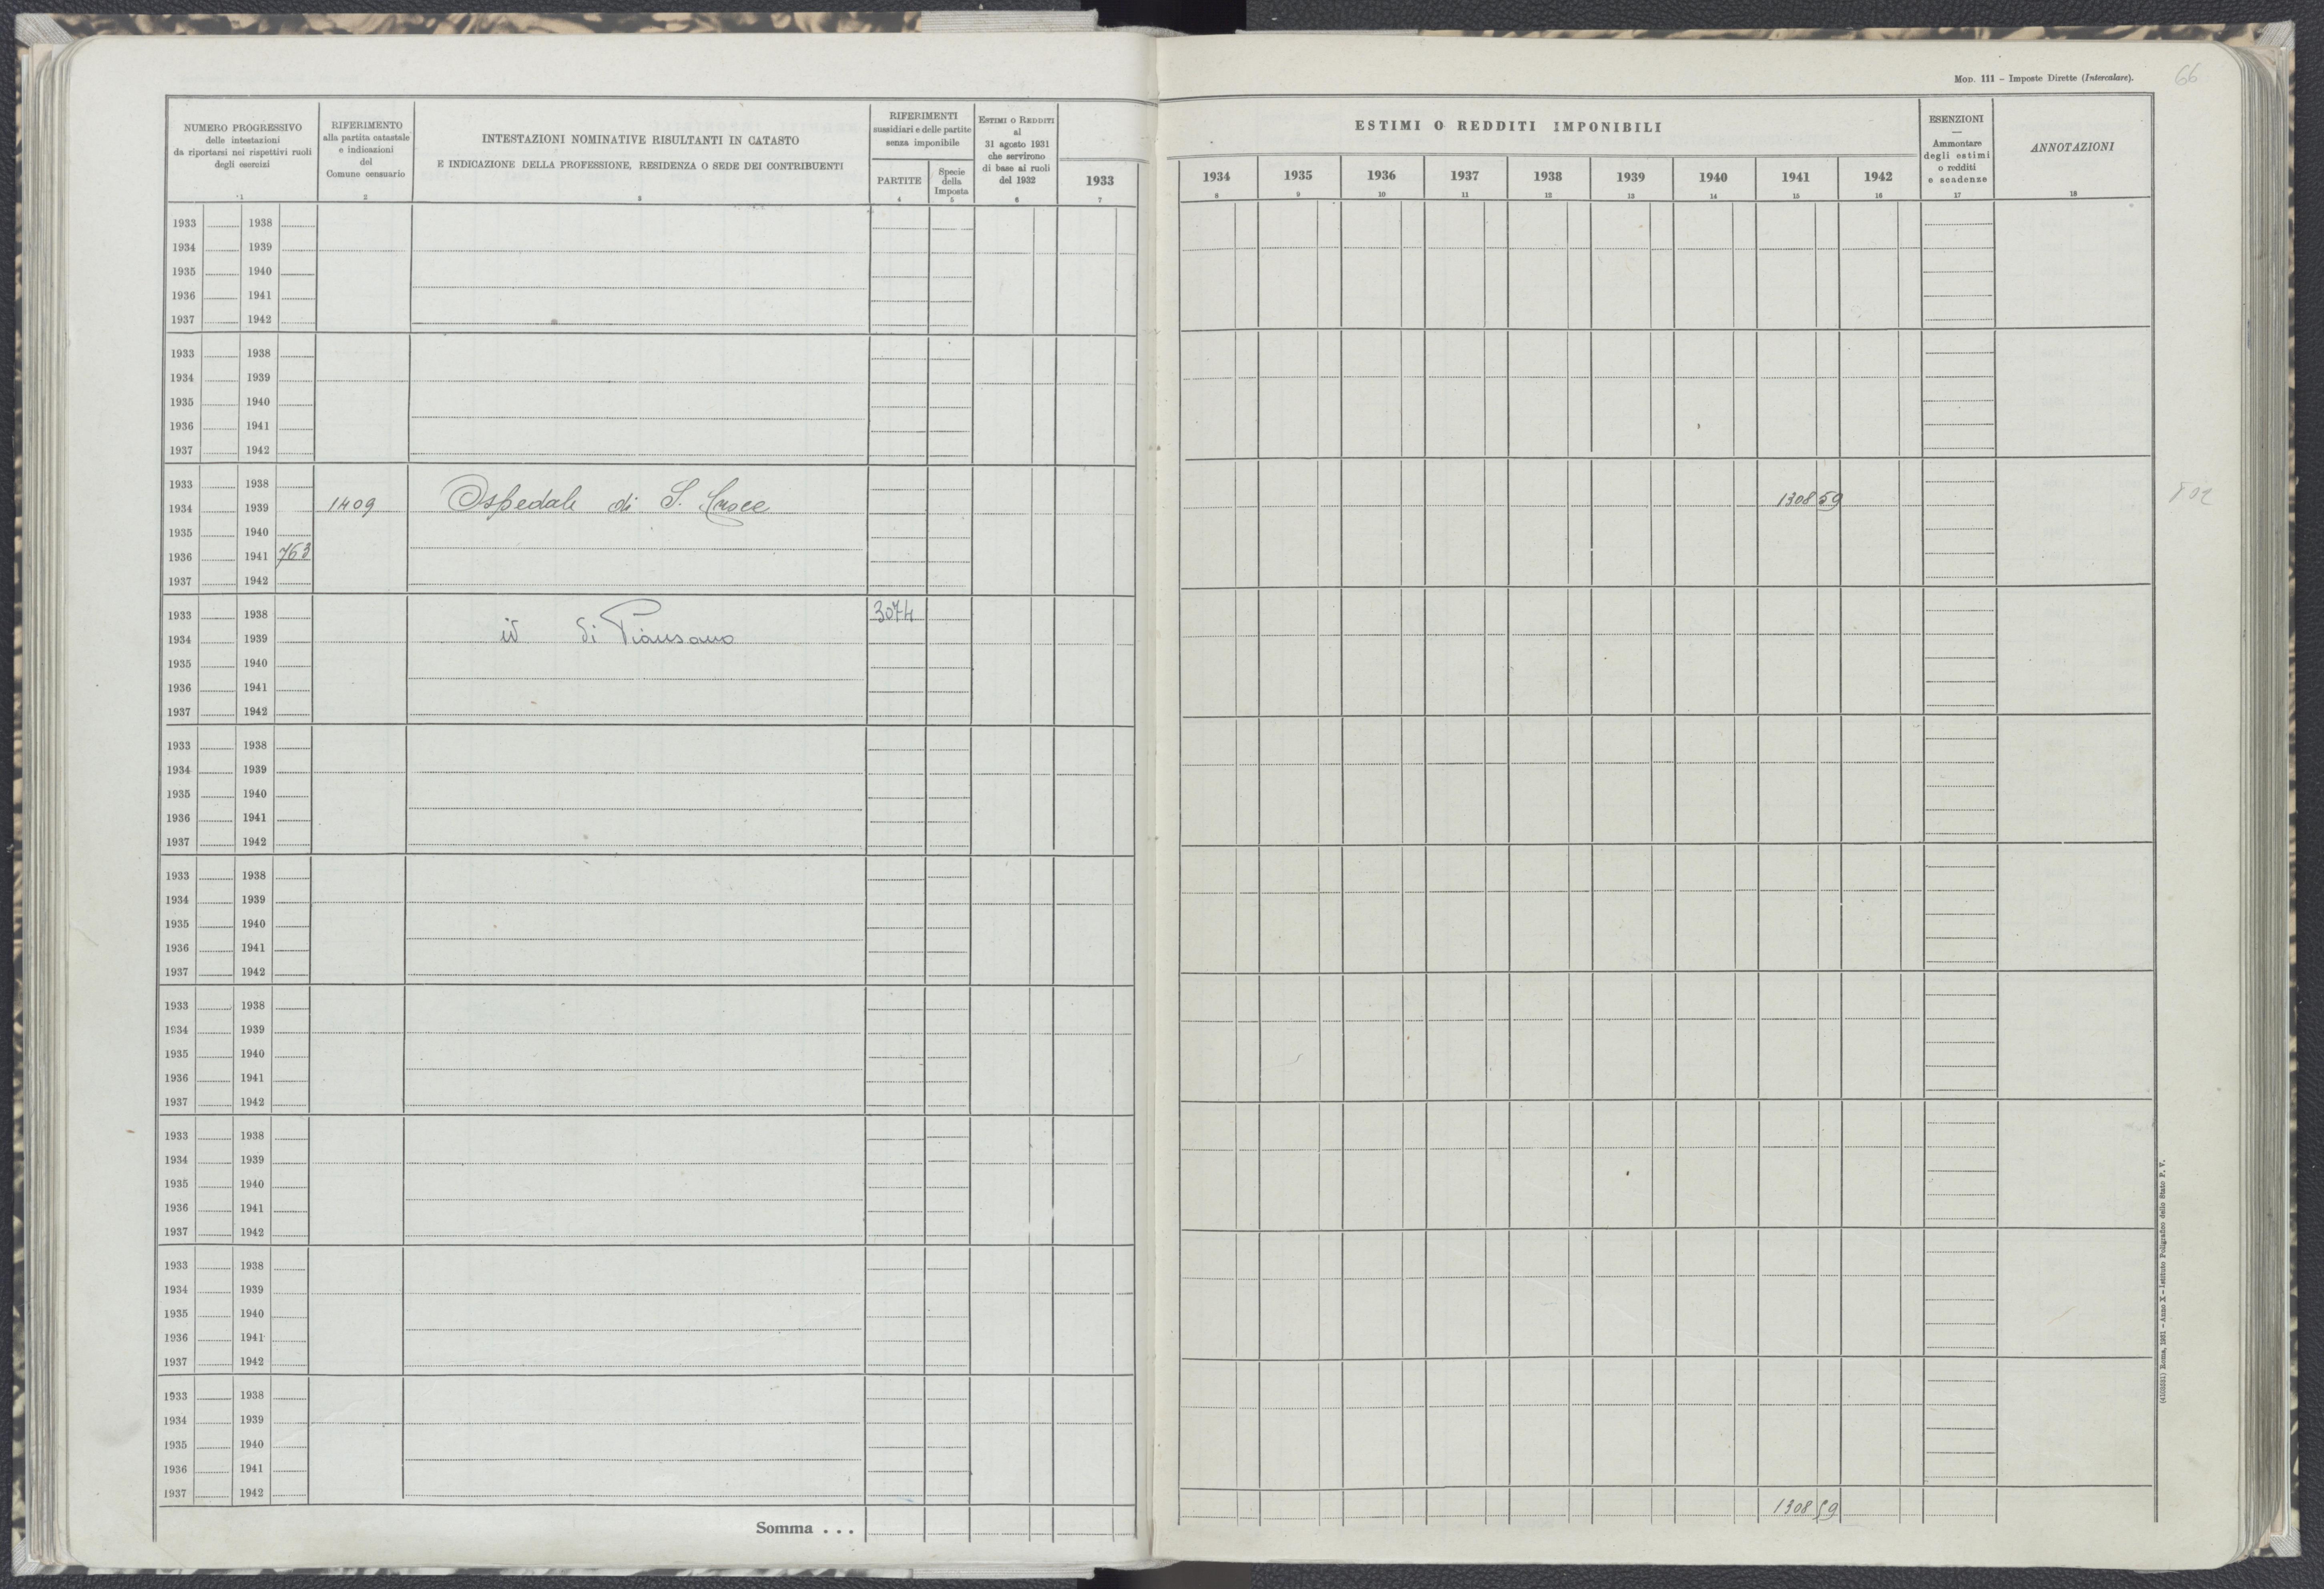 Mod. 111 – Imposte Dirette (Intercalare).
66
NUMERO PROGRESSIVO
delle intestazioni
da riportarsi nei rispettivi ruoli
degli esercizi
1
RIFERIMENTO
alla partita catastale
e indicazioni
del
Comune censuario
2
INTESTAZIONI NOMINATIVE RISULTANTI IN CATASTO
E INDICAZIONE DELLA PROFESSIONE, RESIDENZA O SEDE DEI CONTRIBUENTI
3
RIFERIMENTI
sussidiari e delle partite
senza imponibile
PARTITE
4
Specie
della
Imposta
5
ESTIMI O REDDITI
al
31 agosto 1931
che servirono
di base ai ruoli
del 1932
6
1933
7
ESTIMI O REDDITI IMPONIBILI
1934 1935 1936 1937 1938 1939 1940 1941 1942
8 9 10 11 12 13 14 15 16
ESENZIONI
—
Ammontare
degli estimi
o redditi
e scadenze
17
ANNOTAZIONI
18
1933 1938
1934 1939
1935 1940
1936 1941
1937 1942
1933 1938
1934 1939
1935 1940
1936 1941
1937 1942
1933 1938
1934 1939 1409 Ospedale di S. Croce 1308 59
1935 1940
1936 1941 763
1937 1942
1933 1938 3074
1934 1939 id di Piansano
1935 1940
1936 1941
1937 1942
1933 1938
1934 1939
1935 1940
1936 1941
1937 1942
1933 1938
1934 1939
1935 1940
1936 1941
1937 1942
1933 1938
1934 1939
1935 1940
1936 1941
1937 1942
1933 1938
1934 1939
1935 1940
1936 1941
1937 1942
1933 1938
1934 1939
1935 1940
1936 1941
1937 1942
1933 1938
1934 1939
1935 1940
1936 1941
1937 1942
Somma . . . 1308 59
(4103581) Roma, 1931 – Anno X – Istituto Poligrafico dello Stato P. V.